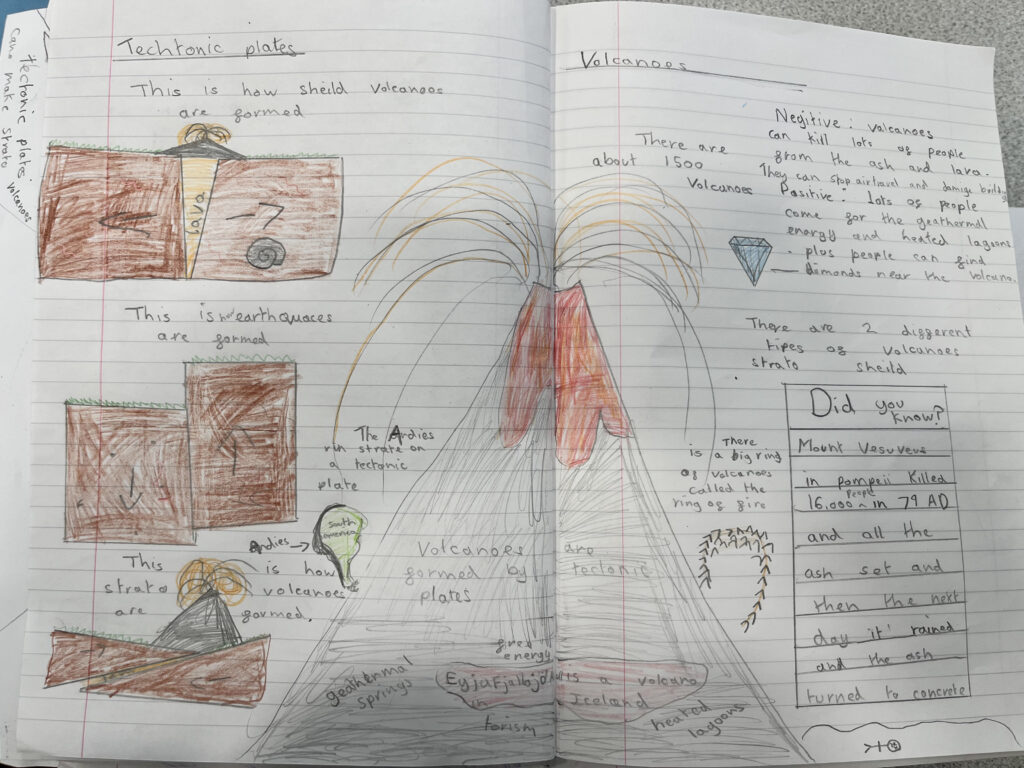 Tectonic plates
can make strato
volcanoes.
Techtonic plates
This is how sheild volcanoes
are formed
lava
This is how earthquaces
are formed
The Andies
run strate on
a tectonic
plate
South
america
Andies
This is how
strato volcanoes
are formed.
Volcanoes
There are
about 1500
volcanoes
Negitive: volcanoes
can kill lots of people
from the ash and lava.
They can stop airtravel and damige buildings
Positive: lots of people
come for the geathermal
energy and heated lagoons
. plus people can find
demonds near the volcano.
There are 2 different
tipes of volcanoes
strato sheild
There
is a big ring
of volcanoes
called the
ring of fire
Did you
know?
Mount Vesuveus
in pompeii killed
16,000 people in 79 AD
and all the
ash set and
then the next
day it rained
and the ash
turned to concrete
Volcanoes are
formed by tectonic
plates
free
energy
geathermal
springs
is a volcano
in Iceland
torism
heated
lagoons